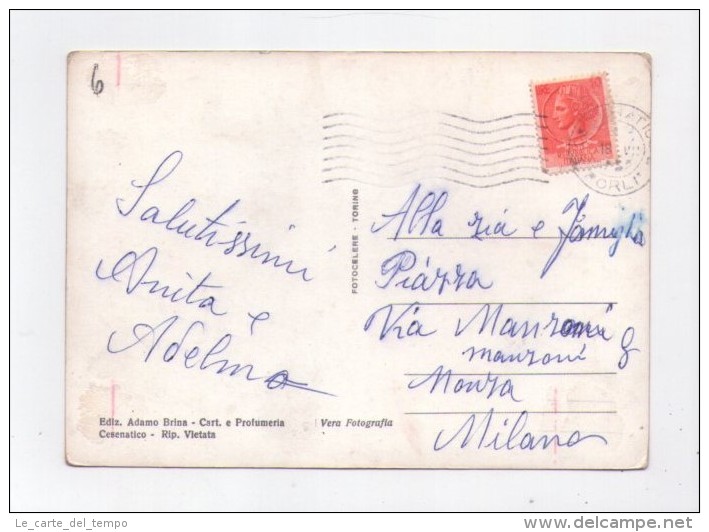 6
Salutissimi
Anita e
Adelmo
Alla zia e famiglia
Piazza
Via Manzoni 8
manzoni
Monza
Milano
FOTOCELERE - TORINO
Ediz. Adamo Brina - Cart. e Profumeria
Cesenatico - Rip. Vietata
Vera Fotografia
Le_carte_del_tempo
delcampe.net